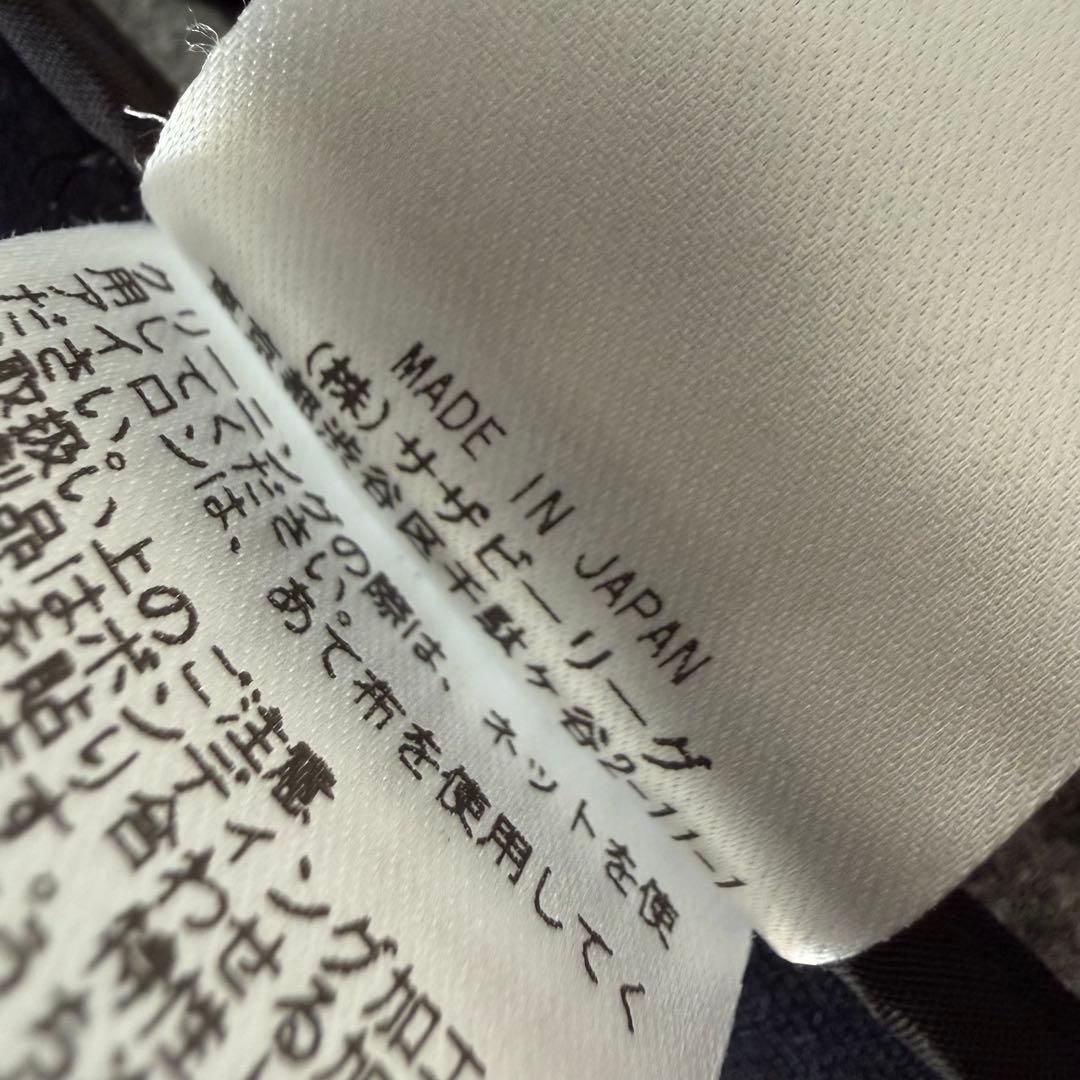 MADE IN JAPAN
(株)サザビーリーグ
東京都渋谷区千駄ケ谷2-11-1
クリーニングの際は、ネットを使
用してください。
アイロンは、あて布を使用してく
ださい。
取扱い上のご注意
製品はボンディング加工
を貼り合わせる加
ます。
特性